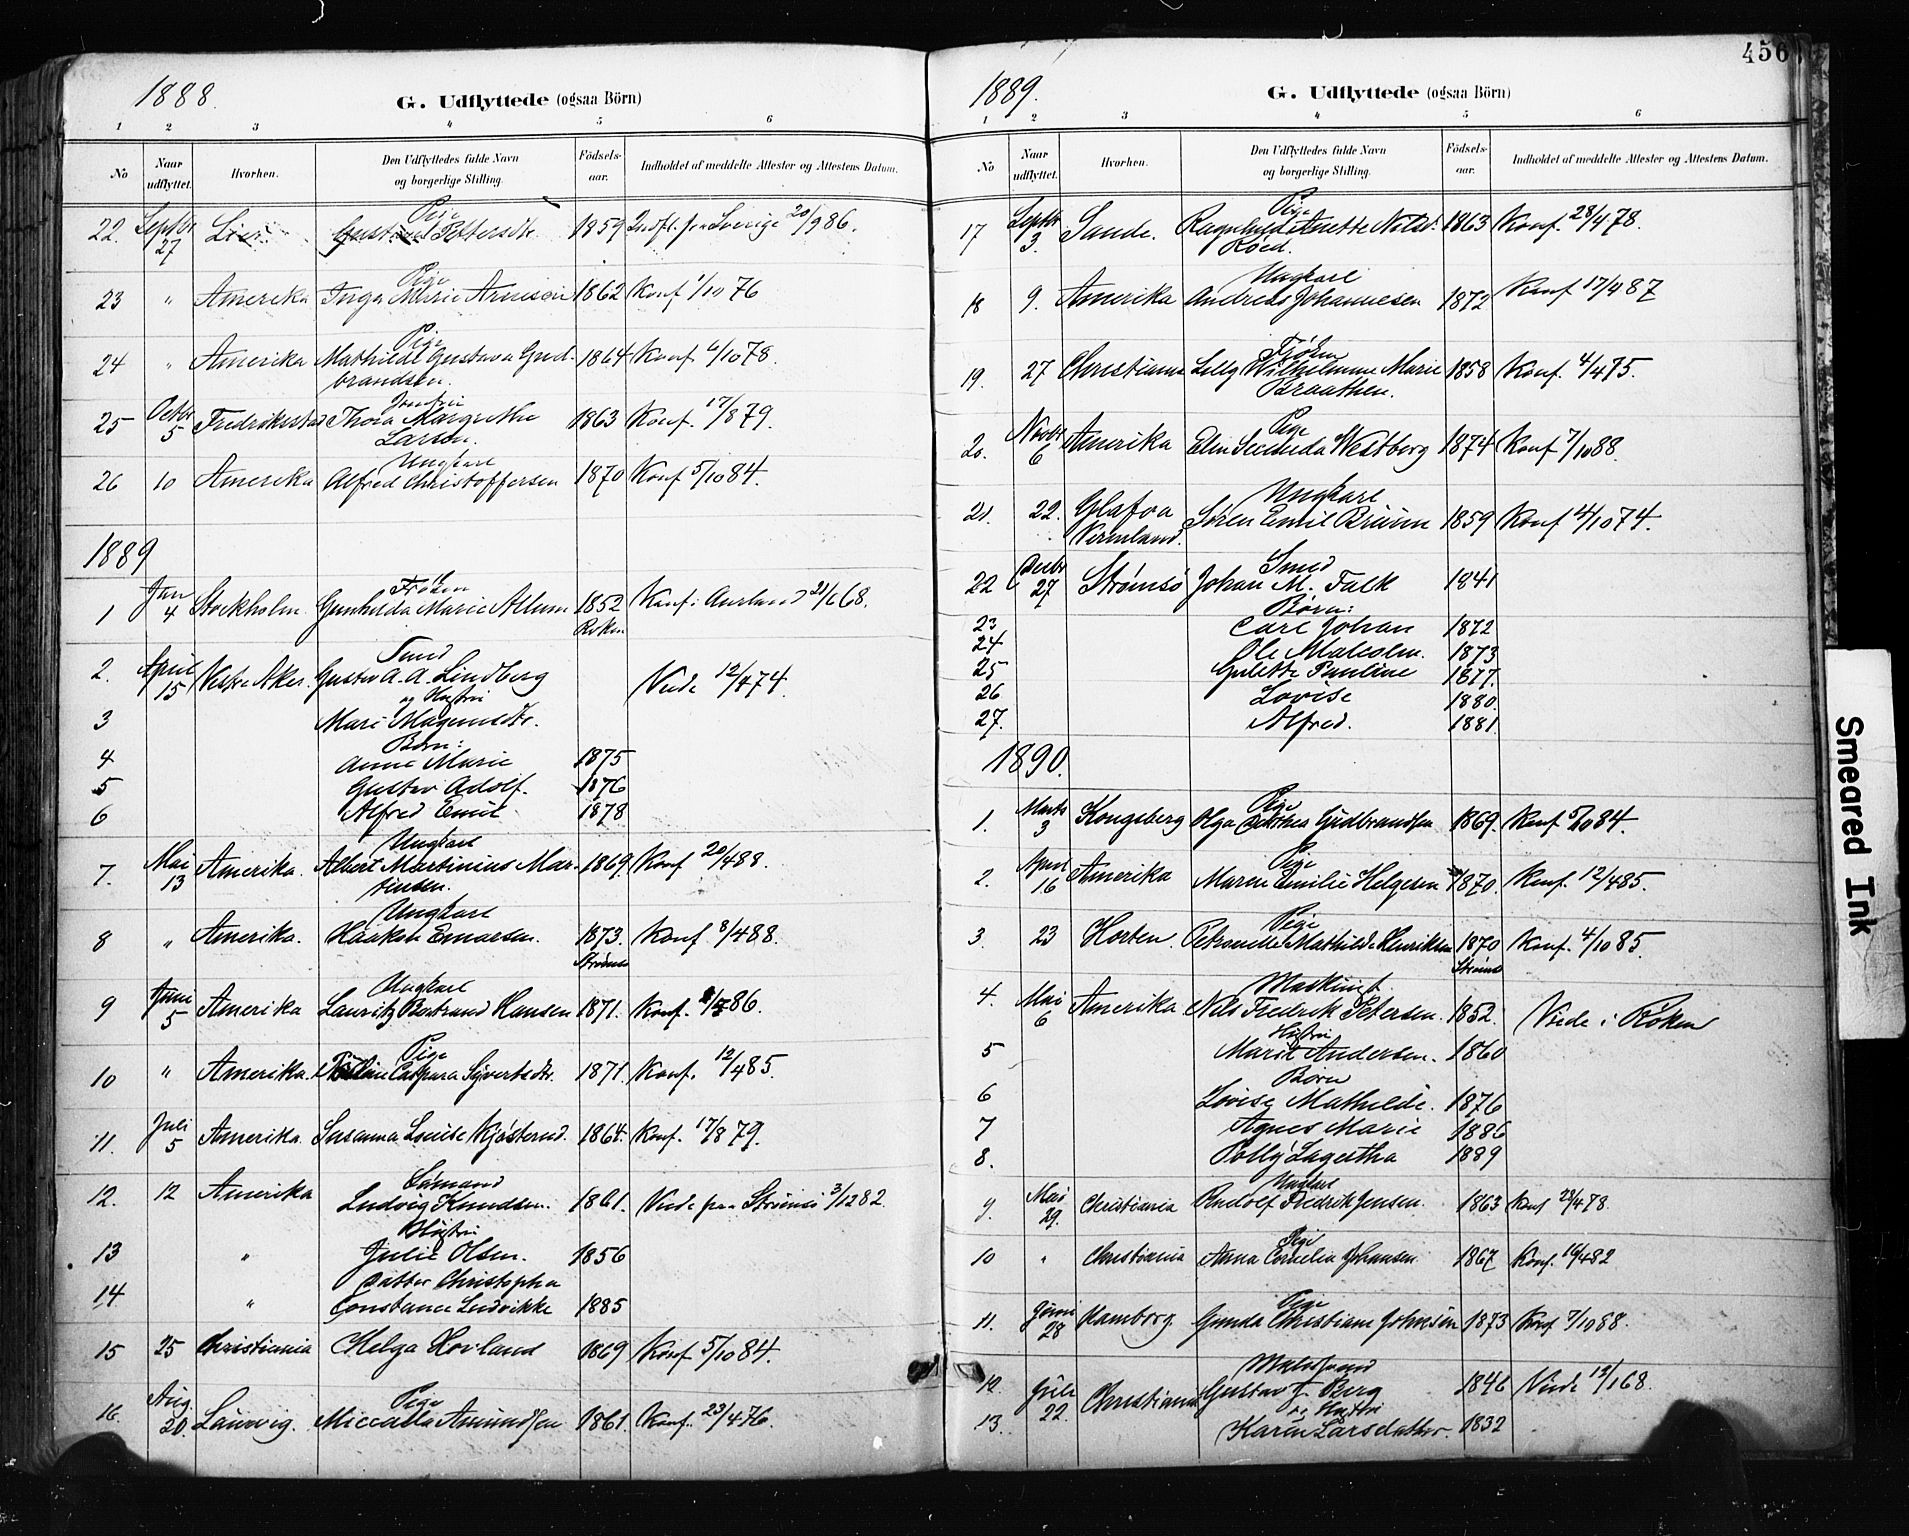 1888.
G. Udflyttede (ogsaa Börn)
1 2 3 4 5 6
No Naar udflyttet. Hvorhen. Den Udflyttedes fulde Navn og borgerlige Stilling. Födselsaar. Indholdet af meddelte Attester og Attestens Datum.
Pige
22. Septbr 27 Lier. Pettersdtr. 1859 Indfl. fra Sverige 20/9 86.
Pige
23 " Amerika Inga Marie Arnesen 1862 Konf 1/10 76
Pige
24 " Amerika Mathilde Gustava Gud- 1864 Konf. 6/10 78.
brandsen.
Jomfru
25 Octbr 5 Fredriksstad Thora Margrethe 1863 Konf. 17/8 79.
Larsen.
Ungkarl
26 10 Amerika Alfred Christoffersen 1870 Konf 5/10 84.
1889
Frøken
1 Jan 4 Stockholm Gunhilda Marie Allum 1852 Konf: Aurland 21/6 68.
Røken
Smed
2. April 15 Vestre Aker. Gustav A. A. Lindberg Viede 12/4 74.
og Hustru
3 Mari Magnusdtr.
Børn:
4 Anne Marie 1875
5 Gustav Adolf. 1876
6 Alfred Emil 1878
Ungkarl
7. Mai 13 Amerika. Albert Martinius Mar- 1869 Konf 20/4 88.
tinsen.
Ungkarl
8 " Amerika. Haakon Emarsen. 1873. Konf 8/4 88.
Strømsø
Ungkarl
9 Juni 5 Amerika Lauritz Bertrand Hansen 1871. Konf. 86.
Pige
10 " Amerika. Caspara Syvertsdtr. 1871. Konf. 12/4 85.
11. Juli 5 Amerika. Susanna Lovise Kjøsterud. 1864. Konf. 17/8 79.
Sømand
12. 12 Amerika Ludvig Knudsen. 1861. Viede paa Strømsø 3/12 82.
Hustru
13 " Julie Olsen. 1856
Datter Christopha
14. " Constance Ludvikke 1885
15 25 Christiania Helga Hoviland 1869 Konf 5/10 84.
Pige
16. Aug. 20. Laurvig. Amundsen 1861 Konf. 23/4 76.
456
1889.
G. Udflyttede (ogsaa Börn)
1 2 3 4 5 6
No Naar udflyttet. Hvorhen. Den Udflyttedes fulde Navn og borgerlige Stilling. Födselsaar. Indholdet af meddelte Attester og Attestens Datum.
Pige
17 Septbr 3. Sande. Ragnhild Anette Nilsd. 1863 Konf. 28/4 78.
Røed.
Ungkarl
18 9. Amerika Andreas Johannesen 1872 Konf 17/4 87
Frøken
19. 27 Christiania Lelly Wilhelmine Marie 1858 Konf. 4/4 75.
Braathen.
Pige
20. Novbr 6 Amerika Elin Westberg 1874 Konf 7/10 88.
Ungkarl
21. 22. Glafva Søren Emil Bruun 1859 Konf 4/10 74.
Vermland.
Smed
22 Decbr 27 Strømsø Johan M. Falk 1841
Børn:
23 Carl Johan 1872
24 Ole Malcolm. 1873
25 Gulette Pauline 1877.
26 Lovise 1880.
27. Alfred. 1881.
1890.
Pige
1. Marts 3 Kongsberg Olga Gudbrandsen 1869. Konf 5/10 84.
Pige
2. April 16 Amerika Maren Emilie Helgesen 1870. Konf. 12/4 85.
Pige
3. 23 Horten. Petronelle Mathilde Henriksen 1870 Konf. 4/10 85.
Strømsø
Maskinist.
4. Mai 6 Amerika Nils Fredrik Petersen. 1852. Viede i Røken
Hustru
5 Marie Andersen. 1860
Børn
6 Lovise Mathilde. 1876
7 Agnes Marie 1886
8. Polly Lagertha 1889
Ungkarl
9. Mai 29. Christiania Rudolf Fredrik Jensen. 1863 Konf 28/4 78.
Pige
10 " Christiania Anna Cornelia Johansen 1867 Konf. 16/4 82
Pige
11. Juni 28 Hamborg. Gunda Christiane Johnsen 1873 Konf 7/10 88.
12. Juli 22. Christiania Gustav J. Berg 1846 Viede 12/1 68.
og Hustru
13. Karen Larsdatter. 1832
Smeared Ink